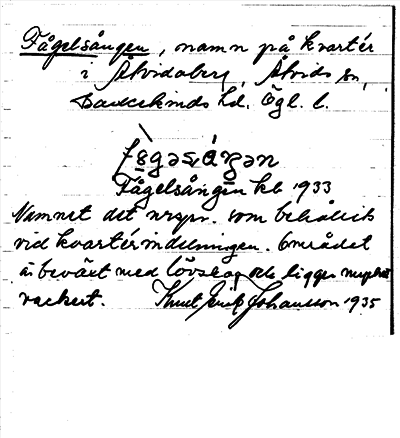 Fågelsången, namn på kvartér
i Åtvidaberg, Åtvids sn,
Bankekinds hd. Ögl. l.
Fågelsången kb 1933
Namnet det urspr. som behållits
vid kvartérindelningen. Området
är beväxt med lövskog och ligger mycket
vackert. Knut Erik Johansson 1935